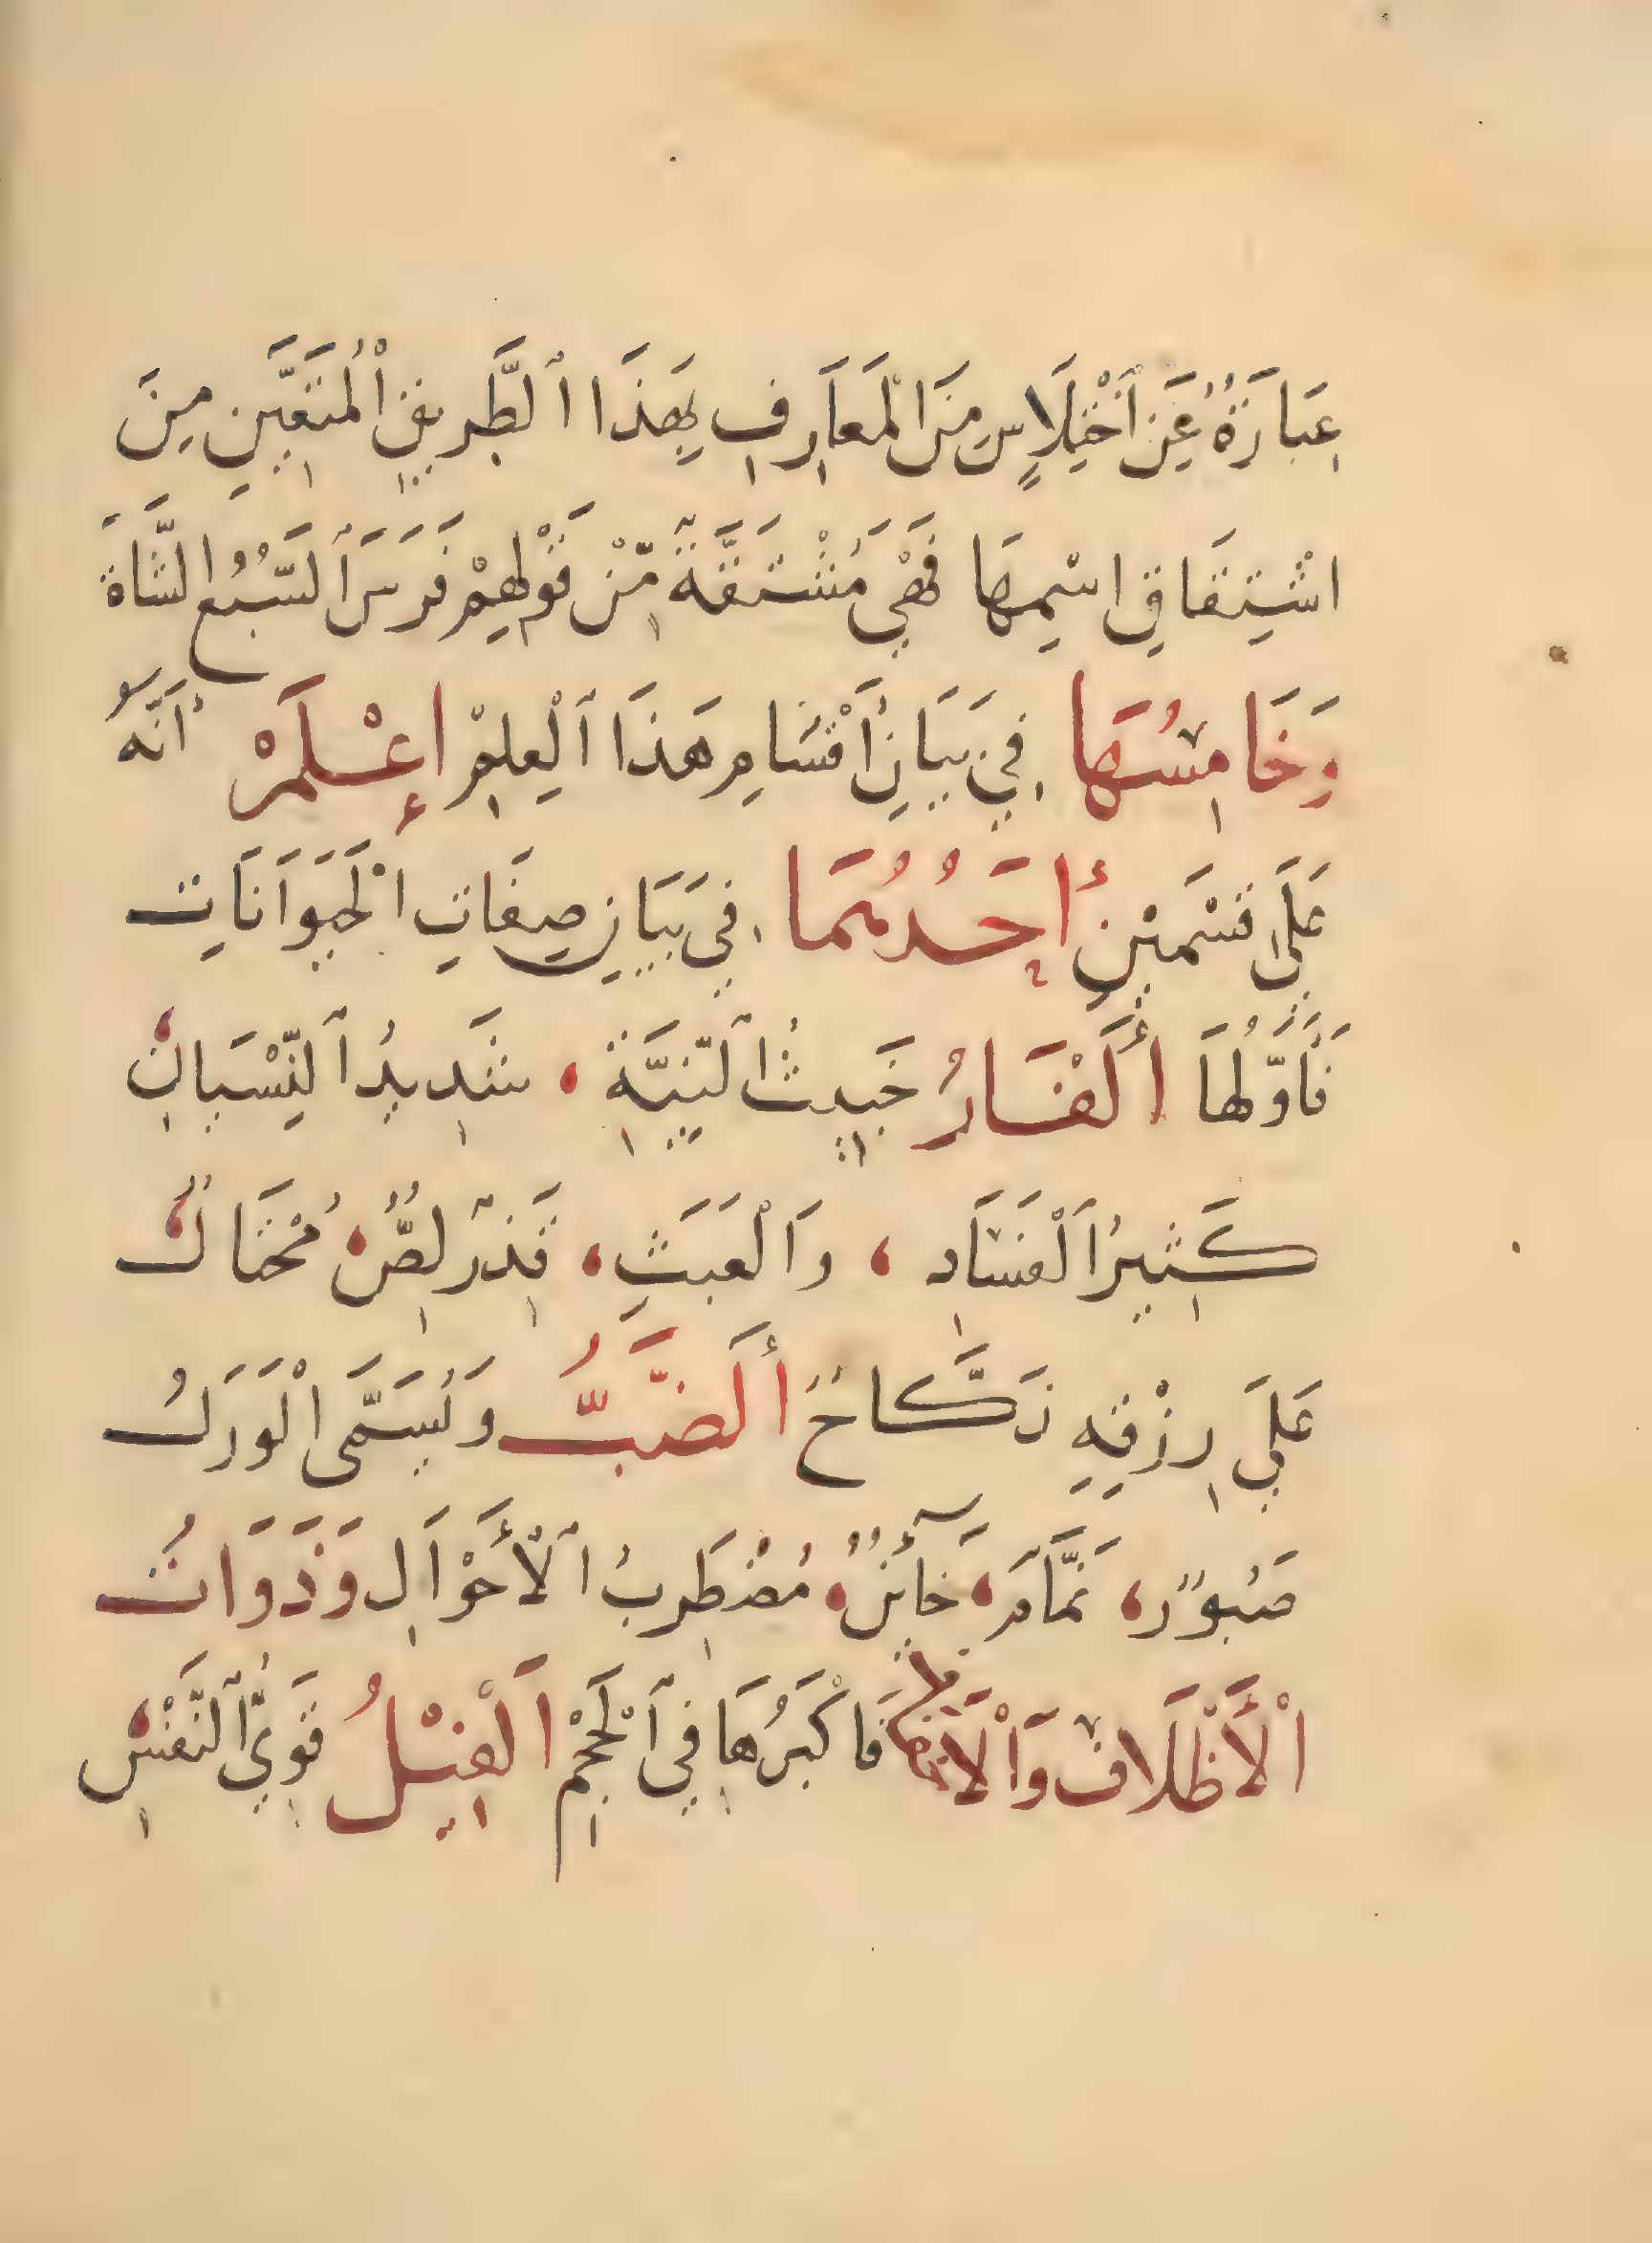 عِبَارَةٌ عَنِ ٱخْتِلَاسٍ مِنَ الْمَعَارِفِ بِهَذَا ٱلطَّرِيقِ الْمُتَعَيِّنِ مِنَ
اشْتِقَاقِ اسْمِهَا فَهْيَ مُشْتَقَّةٌ مِّنْ قَوْلِهِمْ فَرَسَ ٱلسَّبُعُ الشَّاةَ
وَخَامِسُهَا فِي بَيَانِ أَقْسَامِ هَذَا ٱلْعِلْمِ إعْلَمْ أَنَّهُ
عَلَى قِسْمَيْنِ أَحَدُهُمَا فِي بَيَانِ صِفَاتِ الْحَيَوَانَاتِ
فَأَوَّلُهَا أَلْفَارُ خَبِيثُ ٱلنِّيَّةِ، شَدِيدُ ٱلنِّسْيَانِ،
كَثِيرُ ٱلْفَسَادِ، وَالْعَبَثِ، قَذِرٌ لِصٌّ، مُحْتَالٌ،
عَلَى رِزْقِهِ أَلضَبُّ وَيُسَمَّى الْوَرَلُ
صَبُورٌ، نَمَّامٌ، خَآئِنٌ، مُضْطَرِبُ ٱلْأَحْوَالِ وَذَوَاتُ
الْأَظْلَافِ وَالْأَخْفَافِ فَاكْبَرُهَا فِي ٱلْحَجْمِ اَلْفِيْلُ قَوِيُّ ٱلنَّفْسِ،